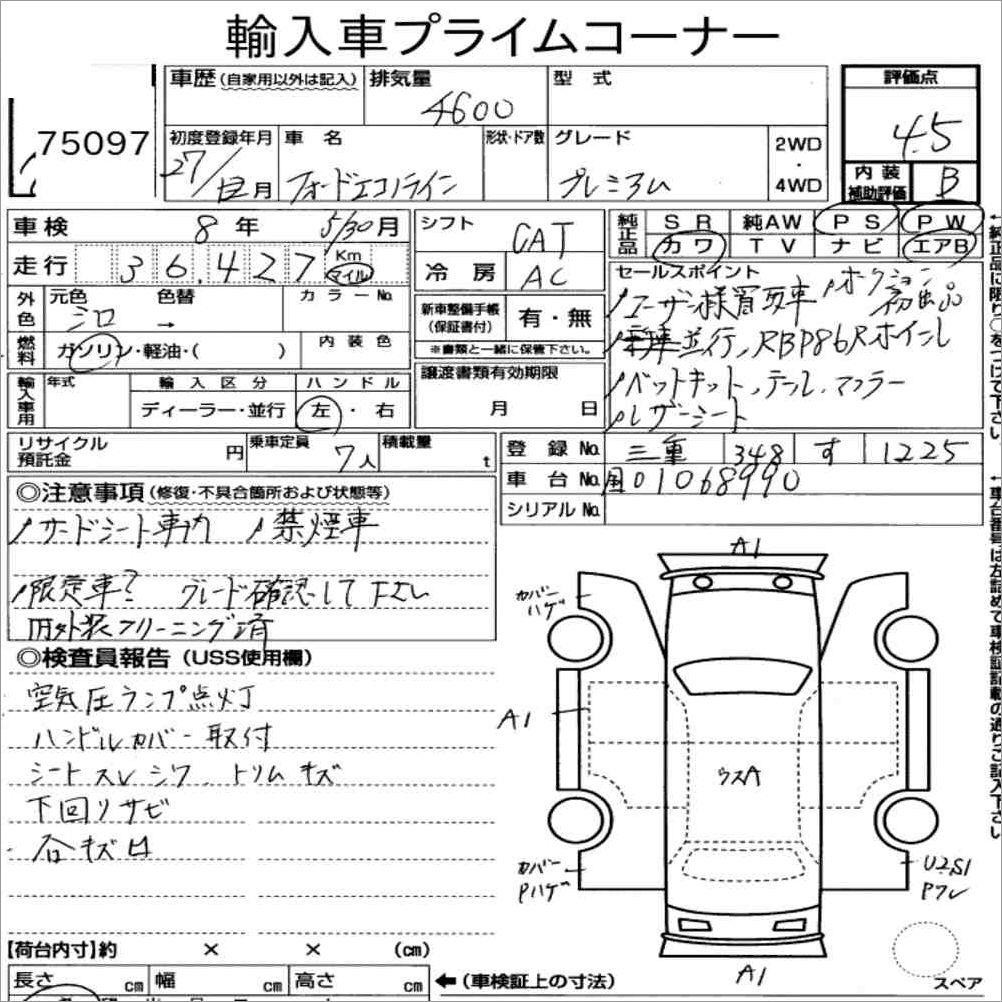 輸入車プライムコーナー
75097
車歴(自家用以外は記入) 排気量 4600 型式
評価点 4.5
初度登録年月 27/12月 車名 フォードエコノライン 形状・ドア数 グレード プレミアム 2WD・4WD
内装補助評価 B
車検 8年 5/30月
走行 36,427 Km マイル
外色 元色 シロ 色替 → カラーNo.
燃料 ガソリン・軽油・( ) 内装色
輸入車用 年式 輸入区分 ディーラー・並行 ハンドル 左・右
リサイクル預託金 円 乗車定員 7人 積載量 t
シフト CAT
冷房 AC
新車整備手帳(保証書付) 有・無
※書類と一緒に保管下さい。
譲渡書類有効期限
月 日
純正品 SR 純AW PS PW
カワ TV ナビ エアB
セールスポイント
ユーザー様買取車 オークション初出品
並行、RBP86Rホイール
テール、マフラー
レザーシート
登録No. 三重 348 す 1225
車台No. 国01068990
シリアルNo.
←純正品に限り○をつけて下さい
←車台番号は左詰めで車検証記載の通りご記入下さい
◎注意事項(修復・不具合箇所および状態等)
サードシート車内 禁煙車
限定車? グレード確認して下さい
内外装クリーニング済
◎検査員報告(USS使用欄)
空気圧ランプ点灯
ハンドルカバー取付
シートスレシワ、トリムキズ
下回りサビ
各キズ凹
A1
カバーハゲ
A1
ウスA
カバーPハゲ
U2S1
Pワレ
A1
スペア
【荷台内寸】約 × × (cm)
長さ cm 幅 cm 高さ cm
←(車検証上の寸法)